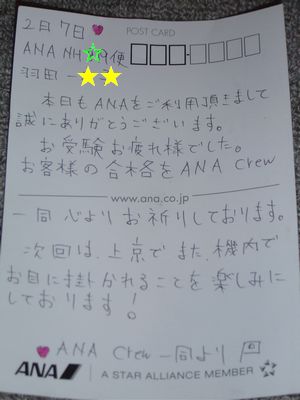 2月7日
POST CARD
ANA NH 便
羽田ー
本日もANAをご利用頂きまして
誠にありがとうございます。
お受験お疲れ様でした。
お客様の合格をANA Crew
www.ana.co.jp
一同心よりお祈りしております。
次回は、上京でまた、機内で
お目に掛かれることを楽しみに
しております!
ANA Crew 一同より
ANA A STAR ALLIANCE MEMBER